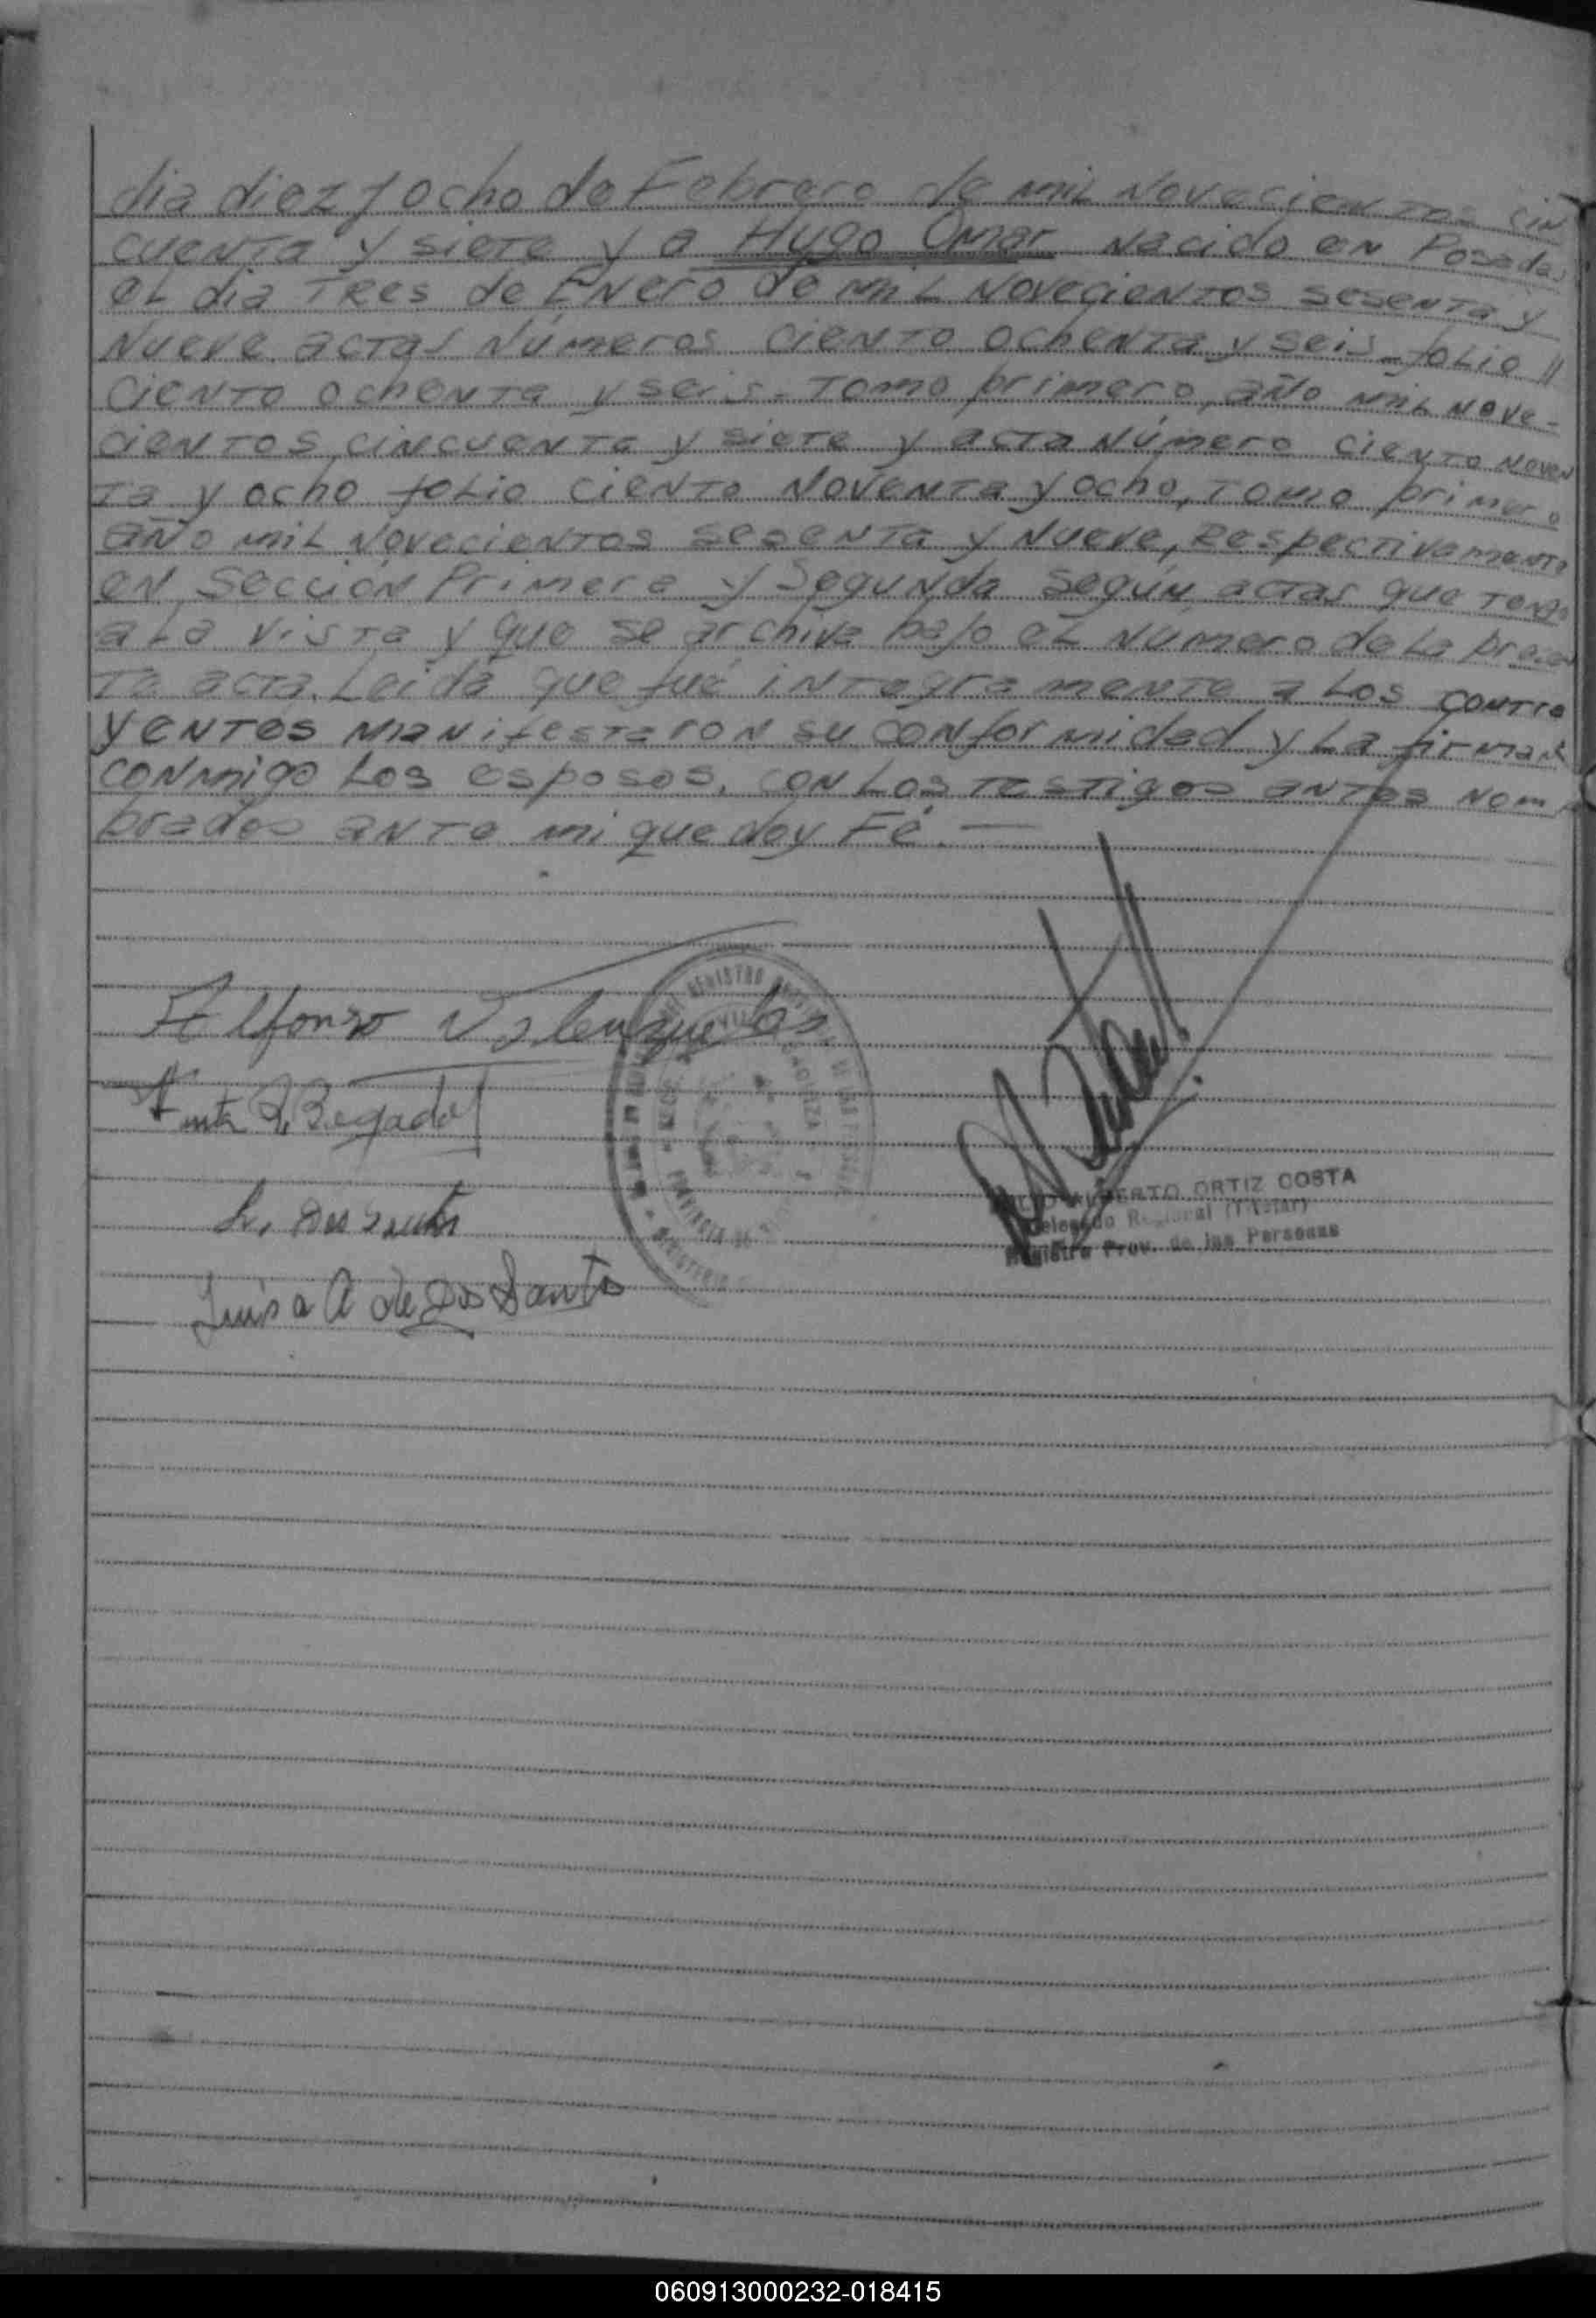 dia diez y ocho de Febrero de mil Novecientos cin
cuenta y siete y a Hugo Omar nacido en Posadas
el dia Tres de Enero de mil Novecientos sesenta y
Nueve actas Números ciento ochenta y seis - folio //
ciento ochenta y seis - Tomo primero, año mil Nove-
cientos, cincuenta y siete y acta Número ciento noven
ta y ocho folio ciento Noventa y ocho, Tomo primero
año mil Novecientos sesenta y Nueve, Respectivamente
en Sección Primera y Segunda según, actas que tengo
a la vista y que se archiva bajo el Número de la presen
te acta. Leida que fué integramente a los contra
yentes manifestaron su conformidad y la firman
conmigo los esposos, con los testigos antes nom
brados ante mi que doy Fé. —
Alfonso Valenzuela
L. Dos Santos
Luisa A de Dos Santos
ORTIZ COSTA
Delegado Regional (Titular)
Registro Prov. de las Personas
060913000232-018415